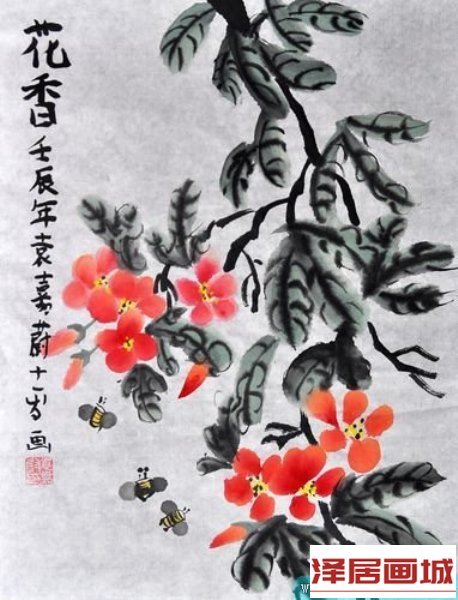 花香
壬辰年袁嘉蔚十一岁画
泽居画城